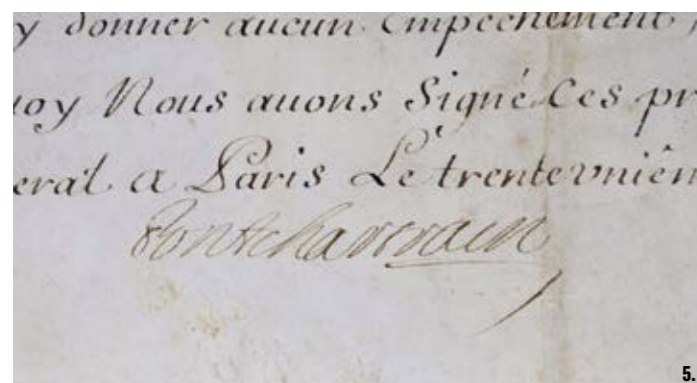 y donner aucun Empechement,
uoy Nous auons Signé Ces pr
eral a Paris Le trentevniêm
Pontchartrain
5.